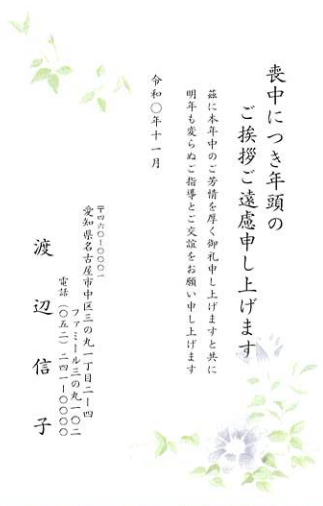 喪中につき年頭の
ご挨拶ご遠慮申し上げます
茲に本年中のご芳情を厚く御礼申し上げますと共に
明年も変らぬご指導とご交誼をお願い申し上げます
令和〇年十一月
〒四六〇-〇〇〇一
愛知県名古屋市中区三の丸一丁目二ー四
ファミール三の丸一〇二
電話（〇五二）二四一ー〇〇〇〇
渡辺信子